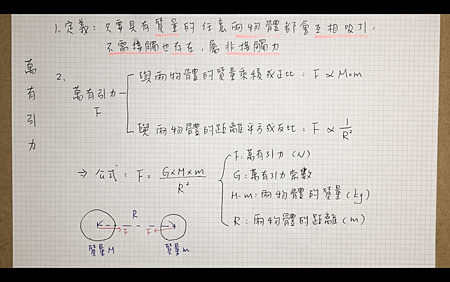 1.定義：只要具有質量的任意兩物體都會互相吸引，
不需接觸也存在，屬非接觸力
萬有引力
2.
萬有引力
F
與兩物體的質量乘積成正比：F ∝ M×m
與兩物體的距離平方成反比：F ∝ 1/R²
⇒ 公式：F = G×M×m/R²
F：萬有引力（N）
G：萬有引力常數
M.m：兩物體的質量（kg）
R：兩物體的距離（m）
R
F F
質量M 質量m